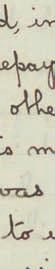 d, in
epay
othe
is m
was
to i